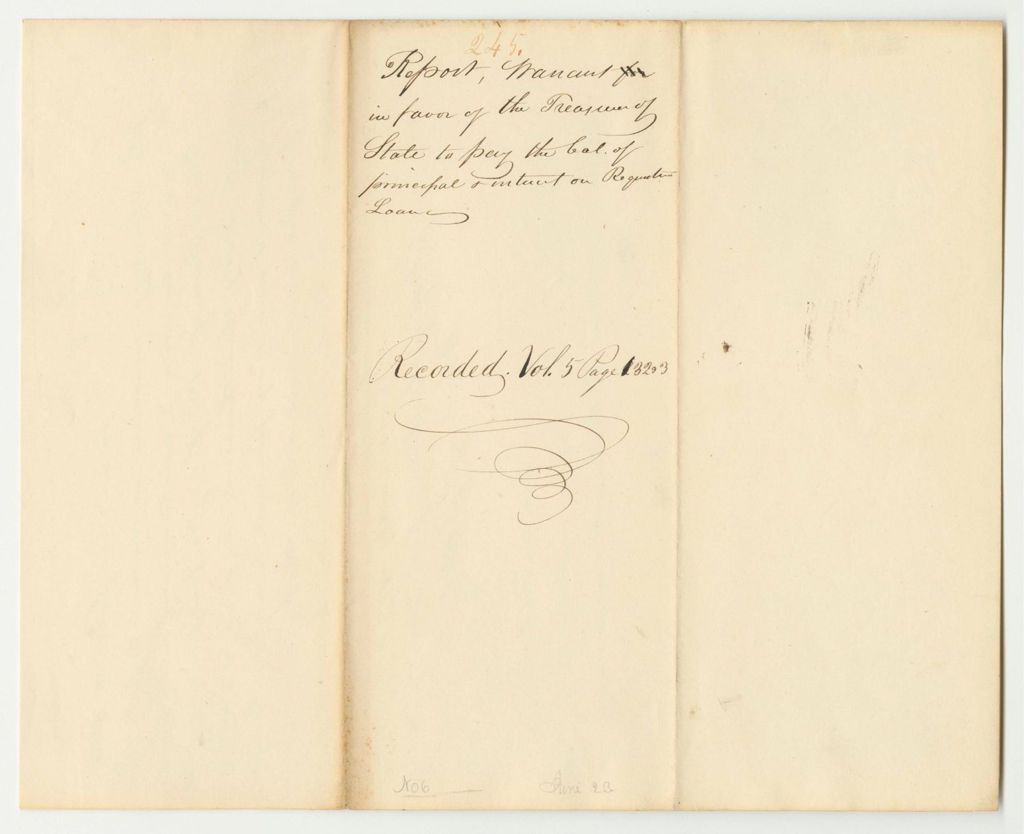 245.
Report, Warrant
in favor of the Treasurer of
State to pay the bal. of
principal & interest on
Loans
Recorded. Vol. 5 Page
No 6
June